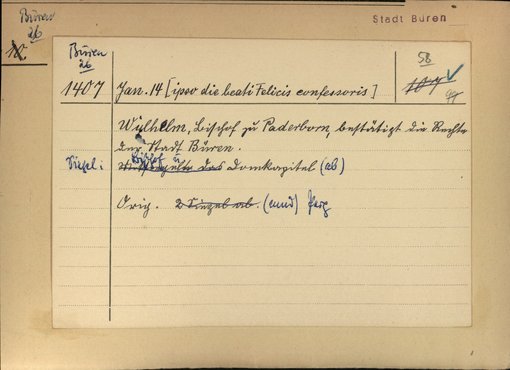 Büren
26
12
Stadt Büren
Büren
26
58
107
99
1407 Jan. 14 [ipso die beati Felicis confessoris]
Wylhelm, Bischof zu Paderborn, bestätigt die Rechte
der Stadt Büren.
Siegel: Bischof u. das Domkapitel (ab)
Orig. 2 Siegel ab. (anud) Perg